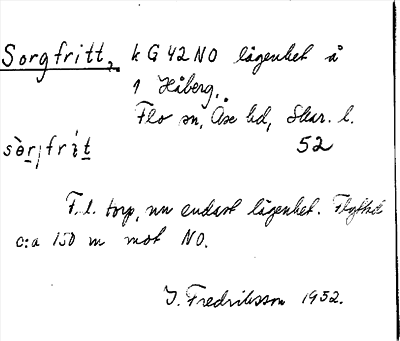 Sorgfritt, k G 42 NO lägenhet å
1 Håberg,
Flo sn, Åse hd, Skar. l.
sòrjfrìt 52
F.d. torp, nu endast lägenhet. Flyttad
c:a 150 m mot NO.
J. Fredriksson 1952.